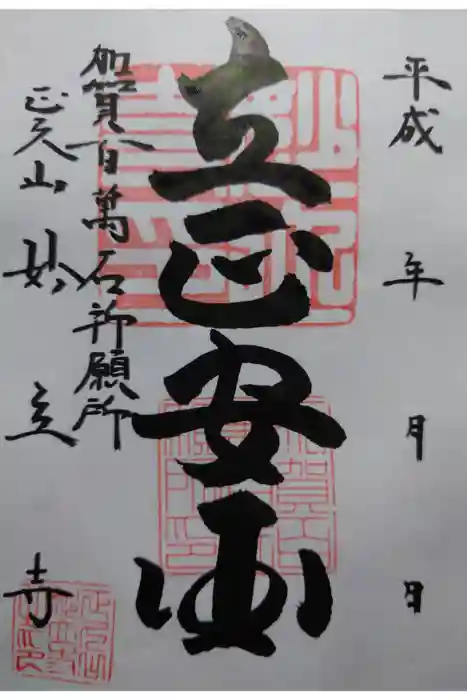 平成　年　月　日
立正安国
加賀百萬石祈願所
正久山　妙立寺